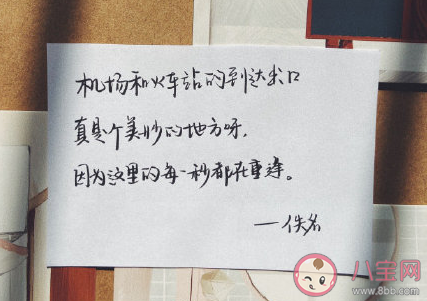 机场和火车站的到达出口
真是个美妙的地方呀,
因为这里的每一秒都在重逢。
——佚名
八宝网
www.8bb.com